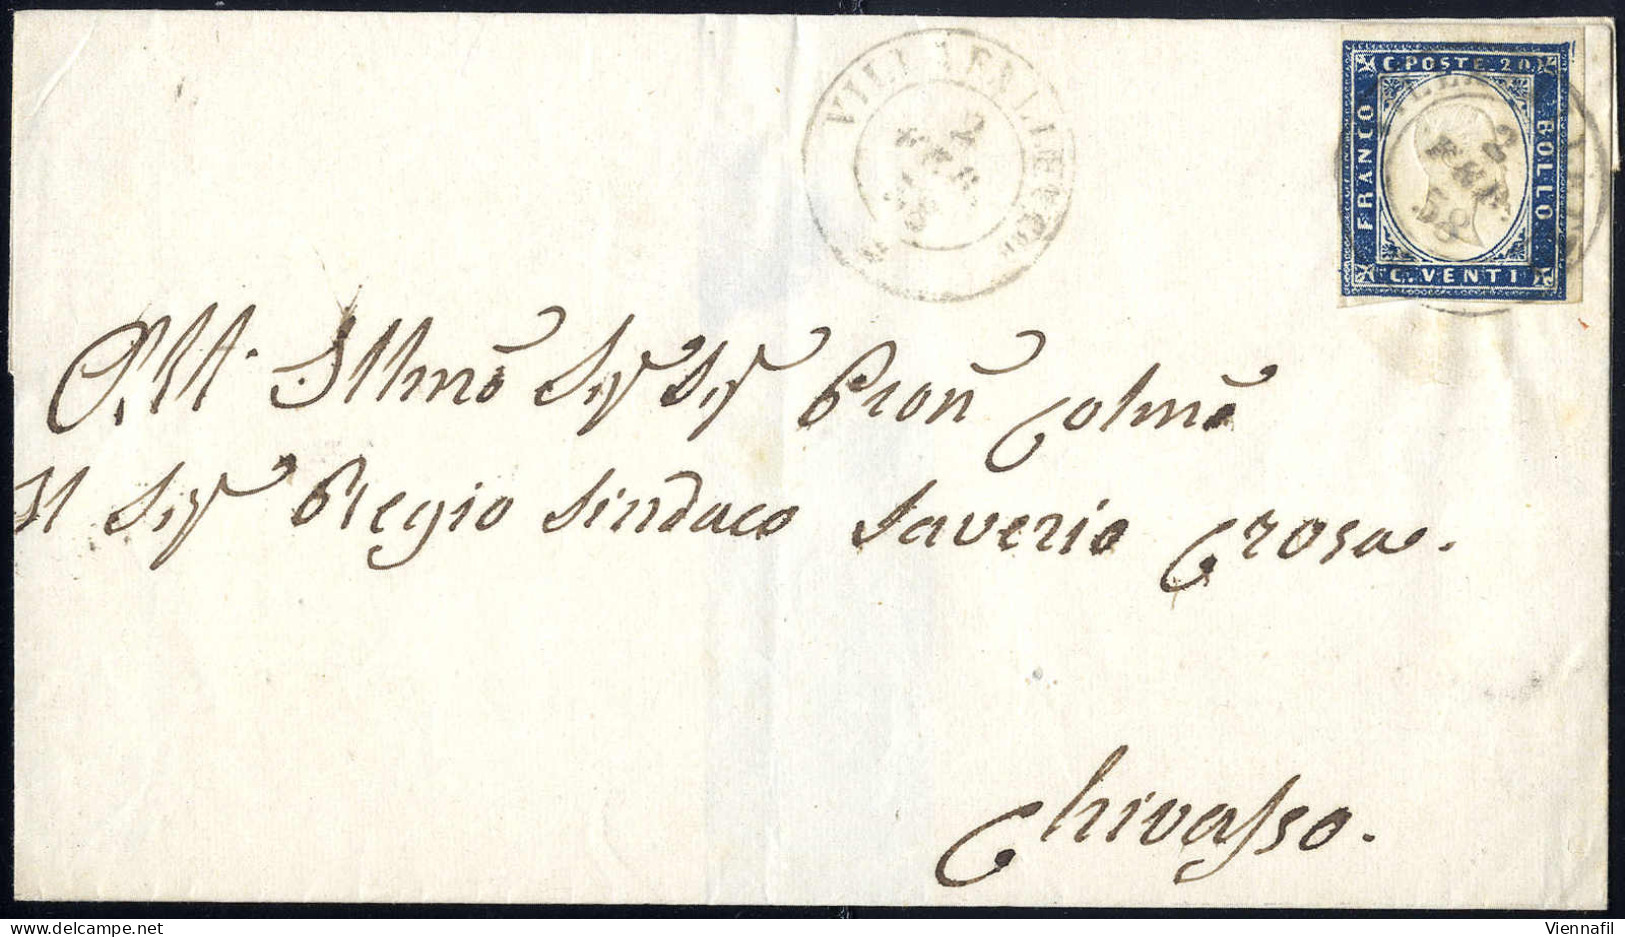 C. POSTE. 20.
FRANCO
BOLLO
C. VENTI
2
FEB
58
All' Illmo Sig Sig Pron Colmo
Il Sig Regio Sindaco Saverio Crosa.
Chivasso.
Viennafil